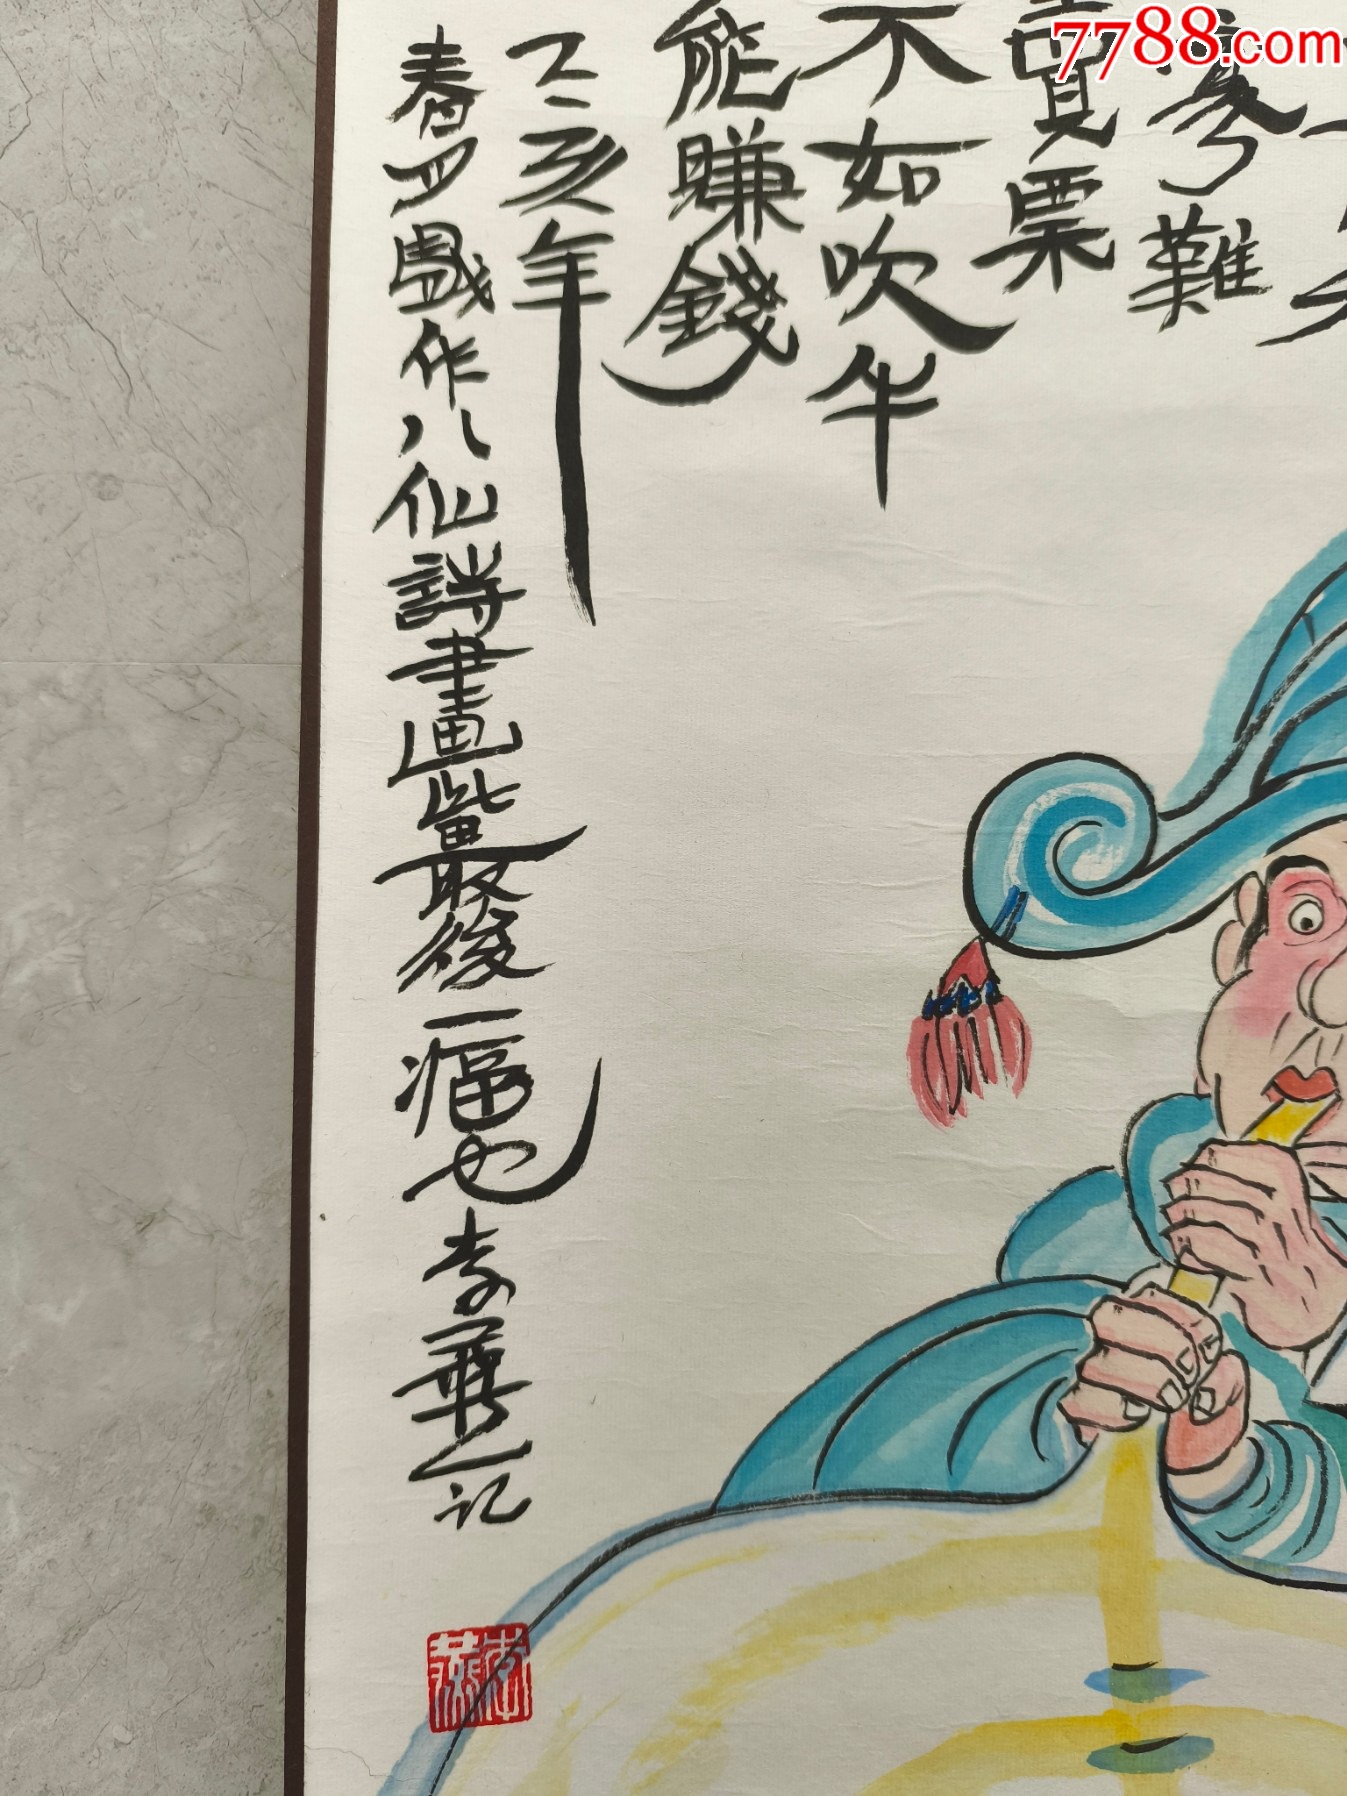 7788.com
難
賣票
不如吹牛
能賺錢
亥年
春戲作八仙詩畫最後一也李燕记
李燕